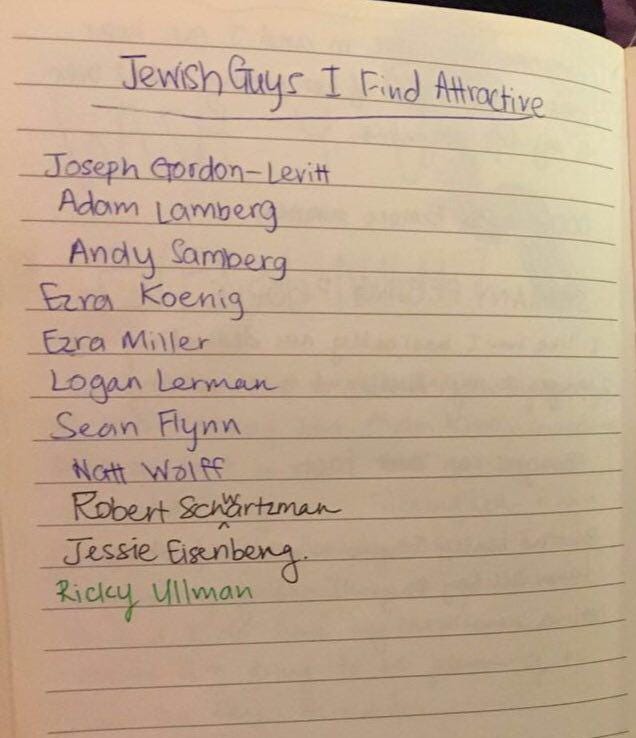 Jewish Guys I Find Attractive
Joseph Gordon-Levitt
Adam Lamberg
Andy Samberg
Ezra Koenig
Ezra Miller
Logan Lerman
Sean Flynn
Natt Wolff
Robert Schwartzman
Jessie Eisenbeng.
Ricky Ullman